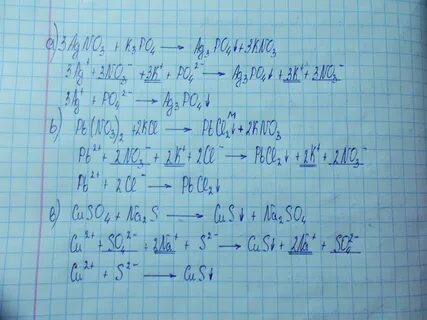 а) 3AgNO₃ + K₃PO₄ → Ag₃PO₄↓ + 3KNO₃
3Ag⁺ + 3NO₃⁻ + 3K⁺ + PO₄²⁻ → Ag₃PO₄↓ + 3K⁺ + 3NO₃⁻
3Ag⁺ + PO₄²⁻ → Ag₃PO₄↓
b) Pb(NO₃)₂ + 2KCl → PbCl₂↓ᴹ + 2KNO₃
Pb²⁺ + 2NO₃⁻ + 2K⁺ + 2Cl⁻ → PbCl₂↓ + 2K⁺ + 2NO₃⁻
Pb²⁺ + 2Cl⁻ → PbCl₂↓
в) CuSO₄ + Na₂S → CuS↓ + Na₂SO₄
Cu²⁺ + SO₄²⁻ + 2Na⁺ + S²⁻ → CuS↓ + 2Na⁺ + SO₄²⁻
Cu²⁺ + S²⁻ → CuS↓